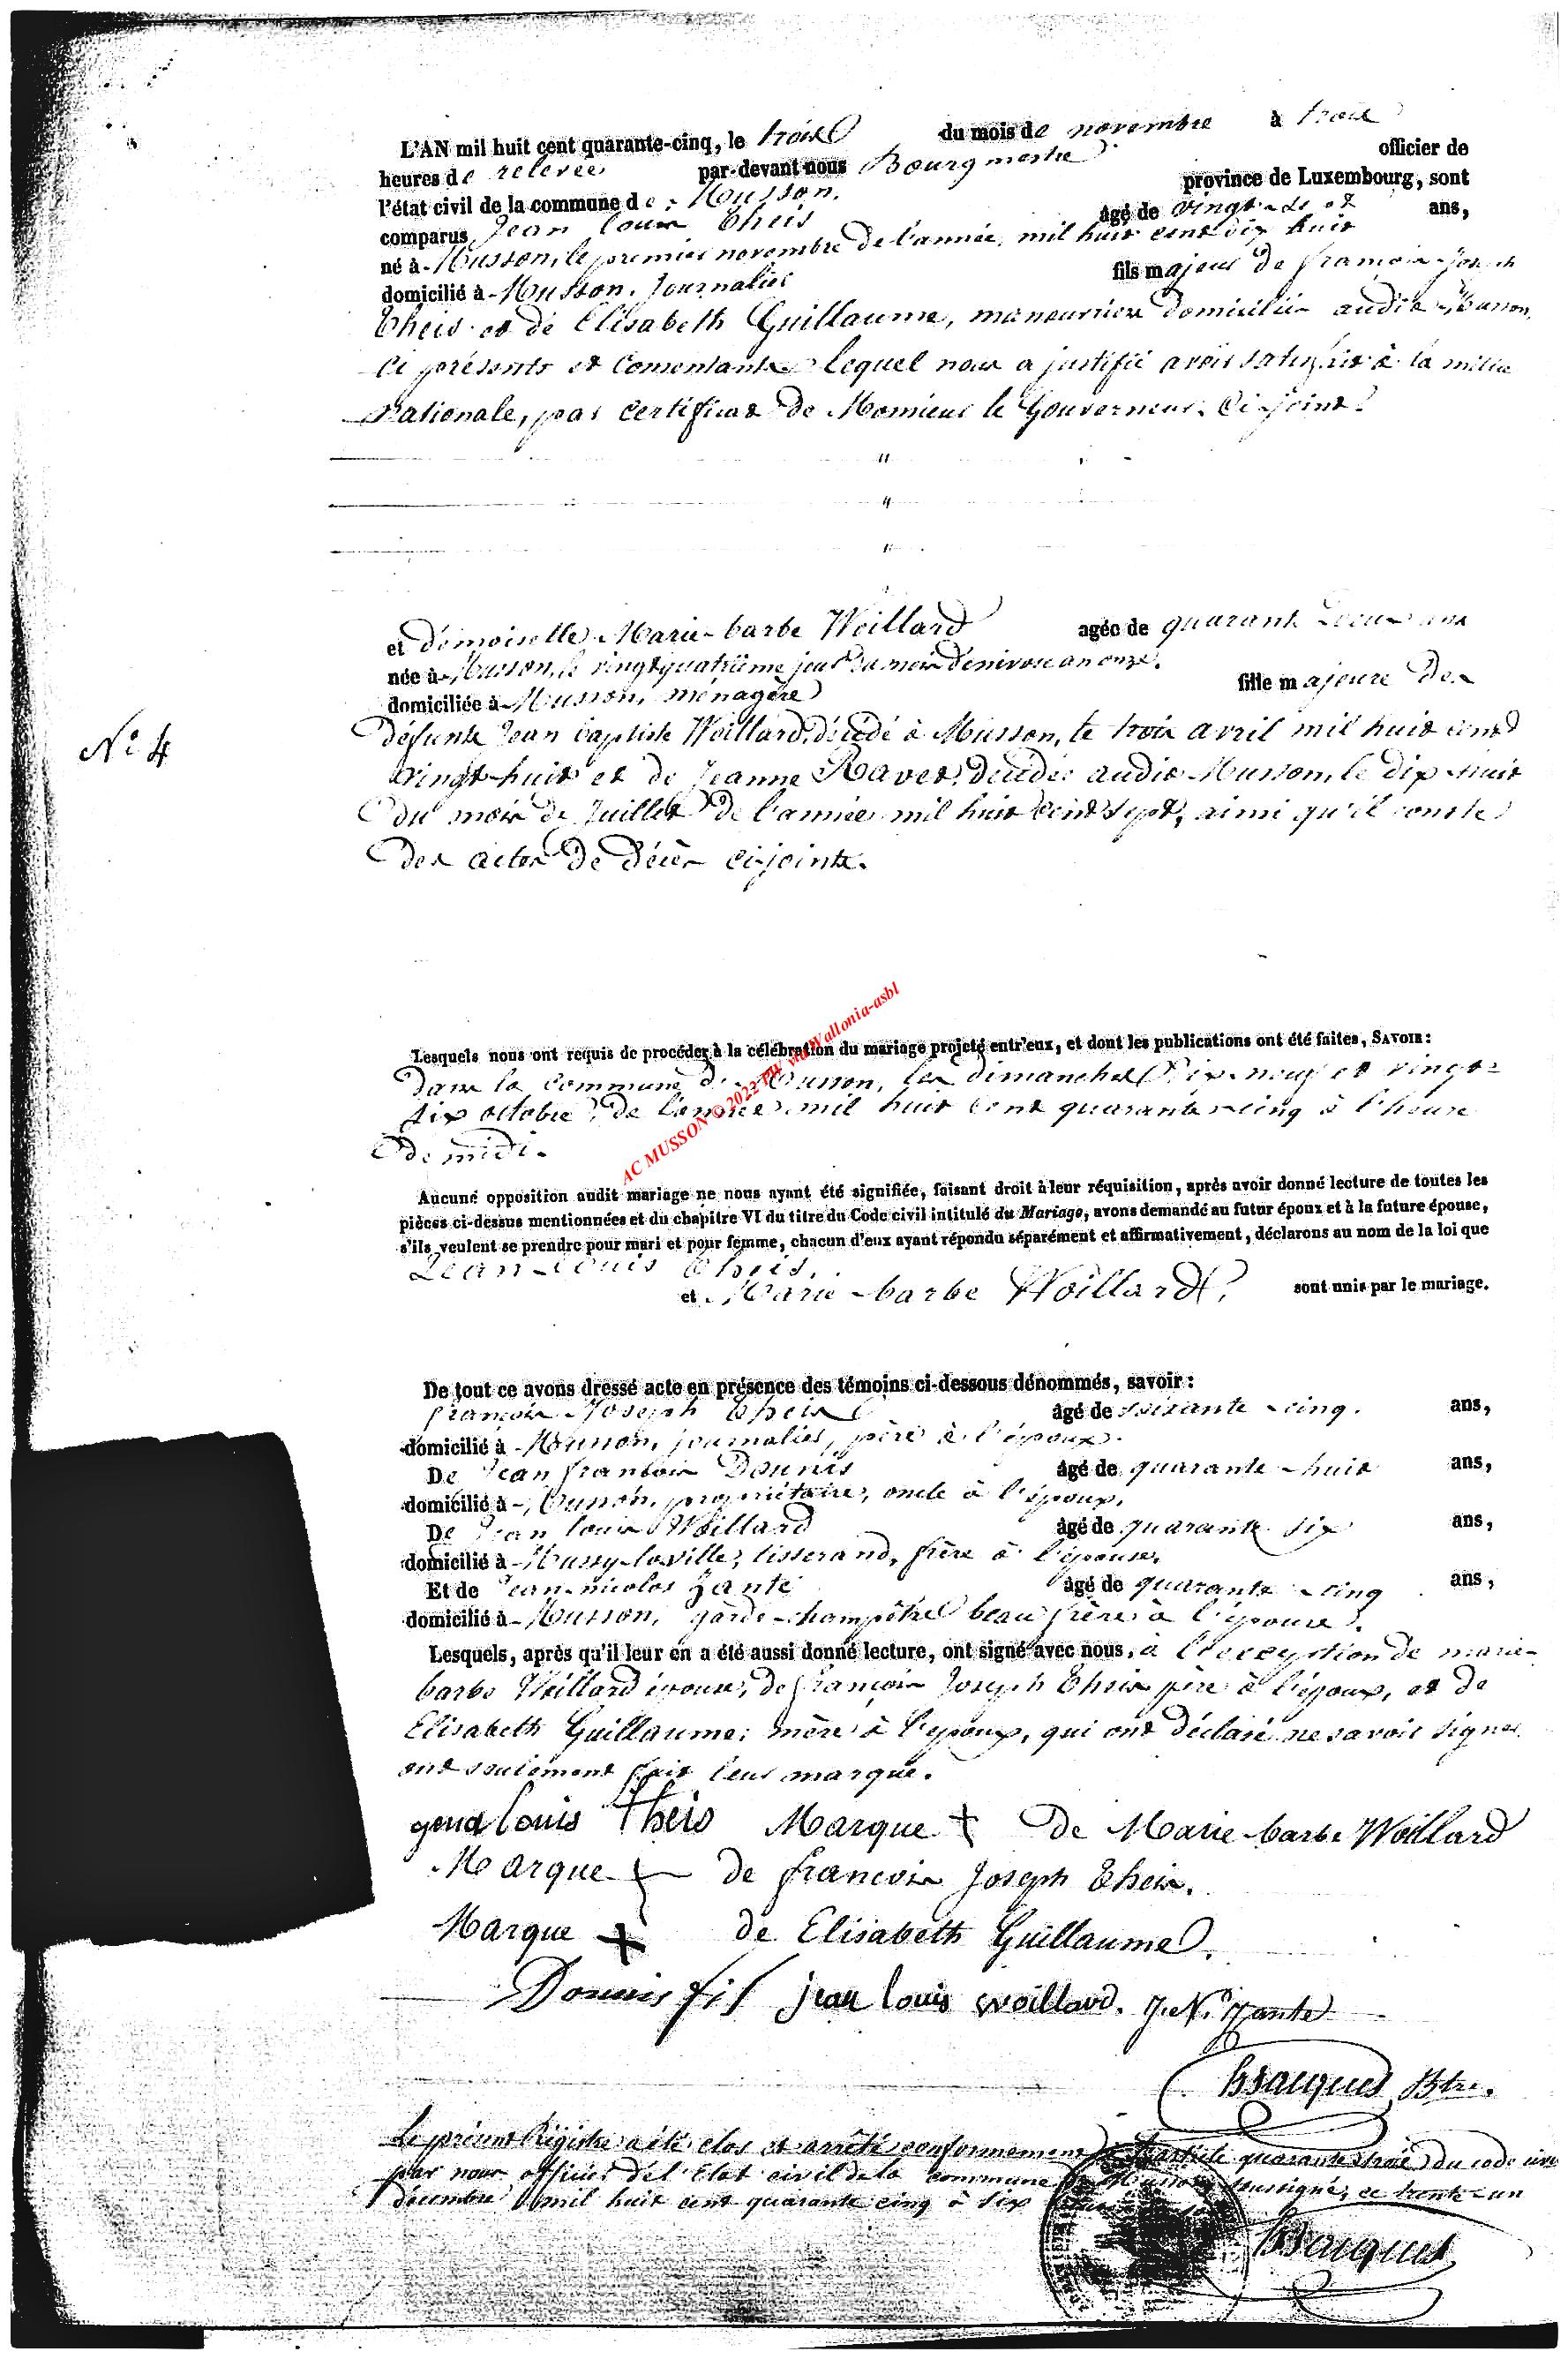 L'AN mil huit cent quarante-cinq, le trois du mois de novembre à trois
heures de relevée par-devant nous Bourgmestre officier de
l'état civil de la commune de Musson. province de Luxembourg, sont
comparus Jean Louis Theis âgé de vingt-sept ans,
né à Musson, le premier novembre de l'année mil huit cent dix huit
domicilié à Musson. Journalier fils majeur de françois Joseph
Theis et de Elisabeth Guillaume, manouvriers domiciliés audit Musson,
ci présents et Consentants lequel nous a justifié avoir satisfait à la milice
Nationale, par certificat de Monsieur le Gouverneur Ci-joint.
"
"
"
et demoiselle Marie-barbe Woillard agée de quarante deux ans
née à Musson, le vingt quatrième jour du mois de nivose an onze.
domiciliée à Musson, ménagère fille majeure des
N° 4
défunts Jean baptiste Woillard, décédé à Musson, le trois avril mil huit cent
vingt-huit et de Jeanne Ravet, décédée audit Musson, le dix-huit
du mois de Juillet de l'année mil huit cent sept, ainsi qu'il conste
des actes de décès ci-joints.
Lesquels nous ont requis de procéder à la célébration du mariage projeté entr'eux, et dont les publications ont été faites, SAVOIR :
Dans la commune de Musson, les dimanches dix-neuf et vingt-
six octobre, de l'année mil huit cent quarante-cinq à l'heure
de midi.
AC MUSSON © 2022 PW via Wallonia-asbl
Aucune opposition audit mariage ne nous ayant été signifiée, faisant droit à leur réquisition, après avoir donné lecture de toutes les
pièces ci-dessus mentionnées et du chapitre VI du titre du Code civil intitulé du Mariage, avons demandé au futur époux et à la future épouse,
s'ils veulent se prendre pour mari et pour femme, chacun d'eux ayant répondu séparément et affirmativement, déclarons au nom de la loi que
Jean-Louis Theis,
et Marie-barbe Woillard, sont unis par le mariage.
De tout ce avons dressé acte en présence des témoins ci-dessous dénommés, savoir :
françois Joseph Theis âgé de soixante-cinq. ans,
domicilié à Musson, journalier, père à l'époux.
De Jean françois Dounis âgé de quarante-huit ans,
domicilié à Musson, propriétaire, oncle à l'époux.
De Jean louis Woillard âgé de quarante six ans,
domicilié à Mussy-la-ville, tisserand, frère à l'épouse,
Et de Jean-nicolas Zante âgé de quarante-cinq ans,
domicilié à Musson, garde-champêtre beau frère à l'épouse.
Lesquels, après qu'il leur en a été aussi donné lecture, ont signé avec nous, à l'exception de marie-
barbe Woillard épouse, de françois Joseph Theis père à l'époux, et de
Elisabeth Guillaume, mère à l'époux, qui ont déclaré ne savoir signer
ont seulement fait leur marque.
Louis Theis Marque + de Marie-barbe Woillard
Marque de françois Joseph Theis.
Marque + de Elisabeth Guillaume.
Dounis fils jean louis woillard. J. N. Zante
Bsaeques Btre.
Le présent Régistre a été clos et arrêté conformément à l'article quarante trois du code civil
par nous officier de l'Etat civil de la commune de Musson soussigné, ce trente-un
décembre mil huit cent quarante cinq à six
Bsaeques